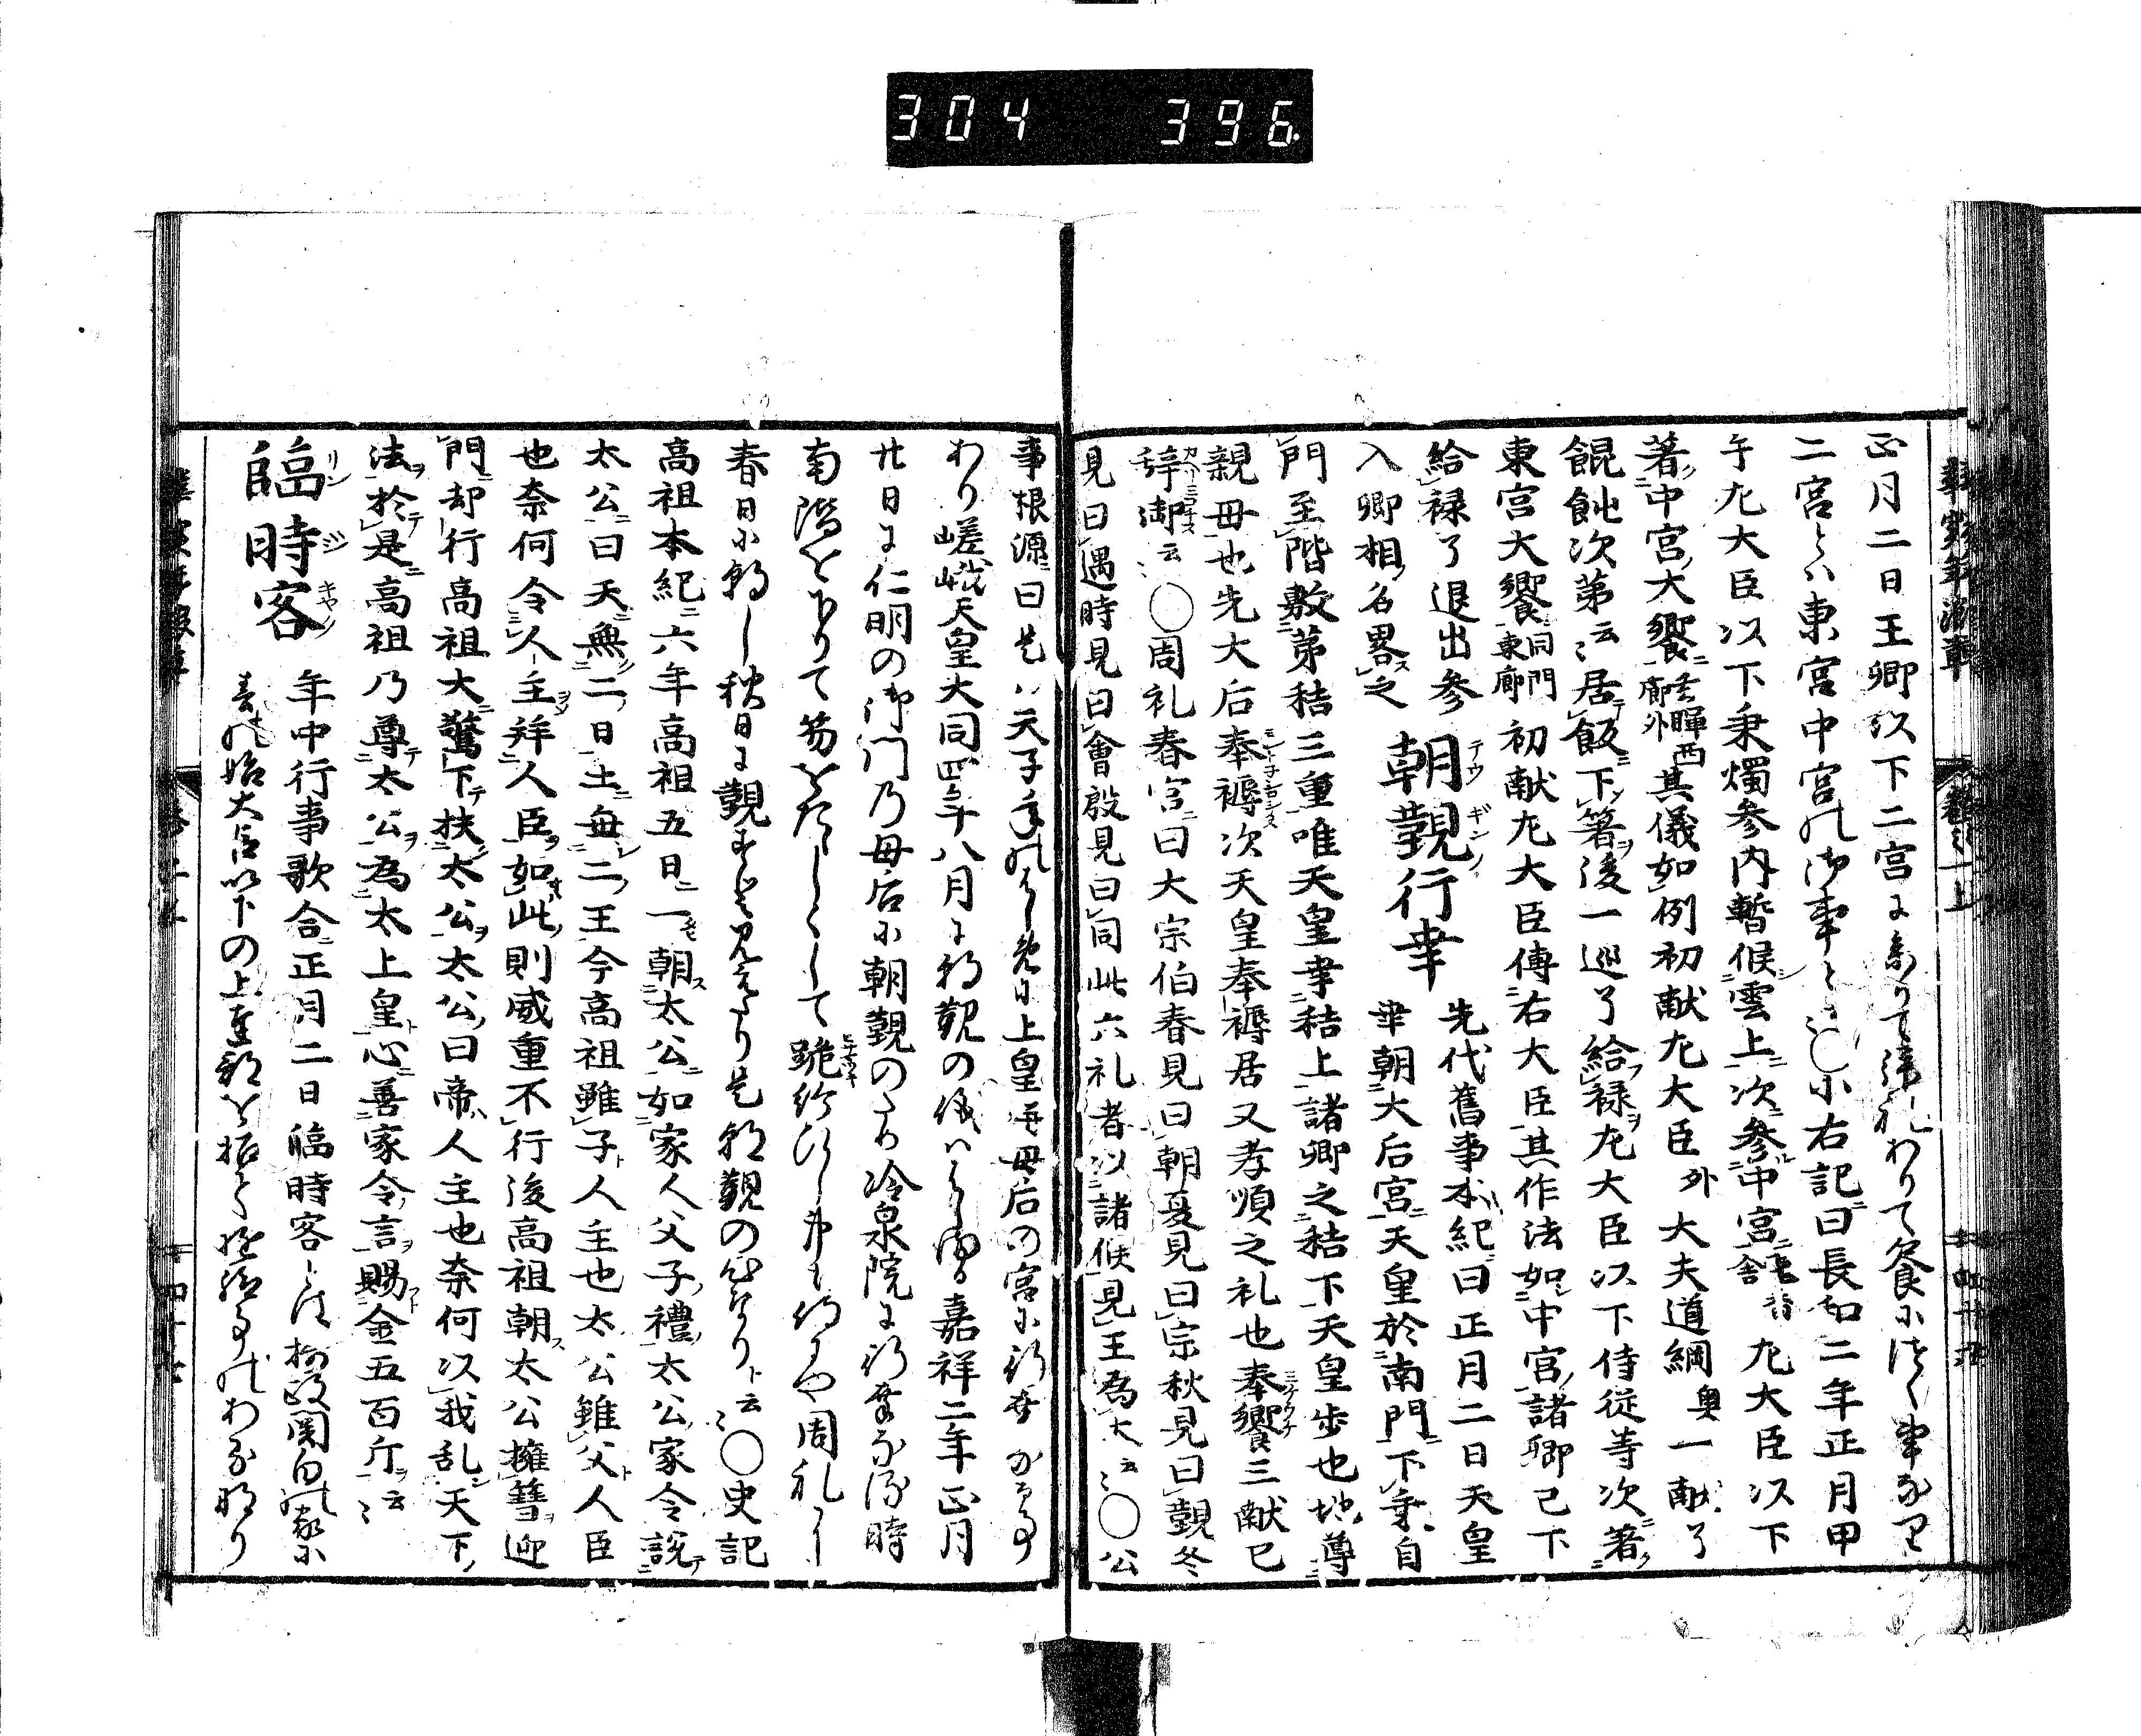 304 396
正月二日王卿以下二宮に参りて拝礼ありて饗につく事なり
二宮とは東宮中宮の御事と〻〇小右記曰長和二年正月甲
午左大臣以下秉燭参内暫候雲上次参中宮 左大臣以下
著中宮大饗 玄暉西廊外 其儀如例初献左大臣 外 大夫道綱 奥 一献了
餛飩次第云〻居飯下箸後一巡了給禄左大臣以下侍従等次著
東宮大饗 同門東廊 初献左大臣傅右大臣其作法如中宮諸卿已下
給禄了退出参
入卿相名畧之
朝覲行幸
テウ ギンノ
先代舊事本紀曰正月二日天皇
幸朝大后宮天皇於南門下乗自
門至階敷茅秸三重唯天皇幸秸上諸卿之秸下天皇歩也地尊
親母也先大后奉褥次天皇奉褥居又孝順之礼也奉饗三献已
辞御云〻〇周礼春官曰大宗伯春見曰朝夏見曰宗秋見曰覲冬
見曰遇時見曰會殷見曰同此六礼者以諸候見王為大云〻〇公
事根源曰是は天子年のはじめに上皇并母后の宮に行幸かる事
あり嵯峨天皇大同四年八月に朝覲の儀はじまる嘉祥二年正月
廿日に仁明の御門乃母后に朝覲のため冷泉院に行幸なる時
南階をおりて笏をたゞしくして跪給ひし事も侍るや周礼にし
春日に朝し秋日に覲すと見えたり是朝覲の心なり云〻〇史記
高祖本紀六年高祖五日一朝太公如家人父子禮太公家令説
太公曰天無二日土無二王今高祖雖子人主也太公雖父人臣
也奈何令人主拝人臣如此則威重不行後高祖朝太公擁篲迎
門却行高祖大驚下扶太公太公曰帝人主也奈何以我乱天下
法於是高祖乃尊太公為太上皇心善家令言賜金五百斤云〻
臨時客
リン ジ キヤク
年中行事歌合正月二日臨時客とは摂政関白の家に
春の始大臣以下の上達部を招て遊宴事のあるなり